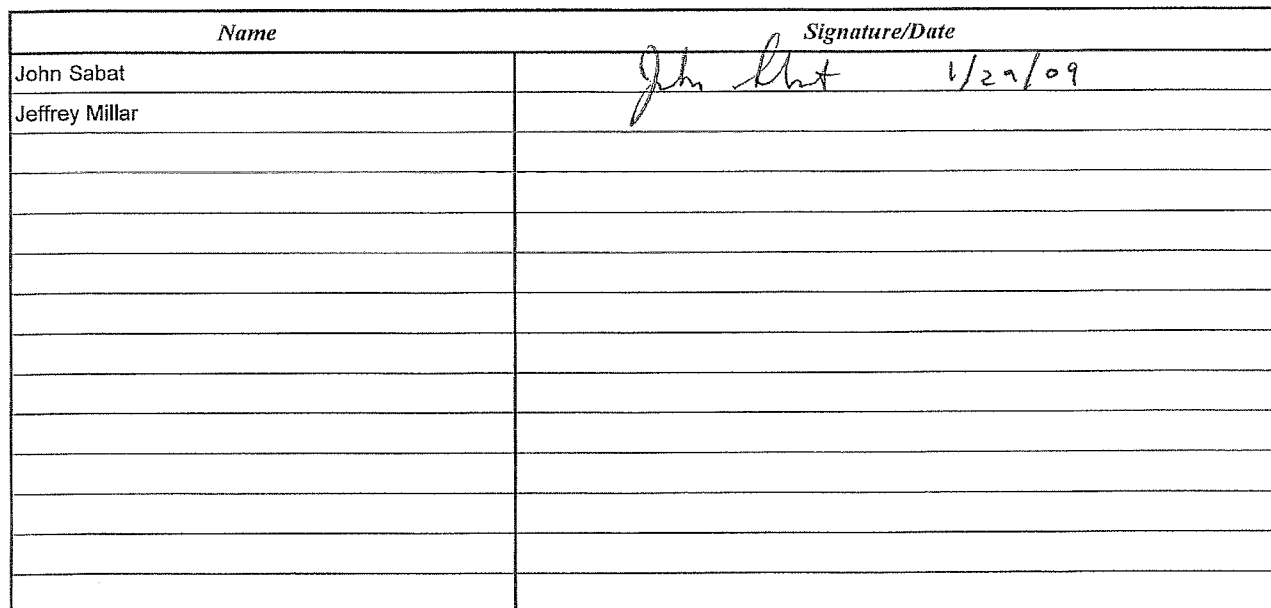 Name Signature/Date
John Sabat John Sabat 1/29/09
Jeffrey Millar